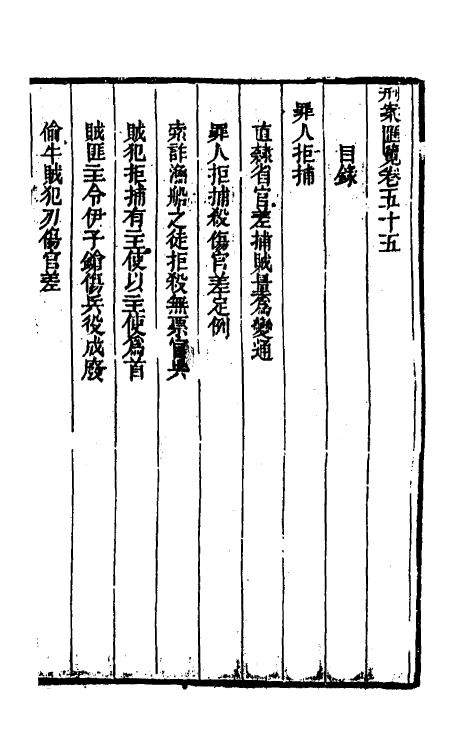 刑案匯覽卷五十五
目錄
罪人拒捕
直隸省官差捕賊量爲變通
罪人拒捕殺傷官差定例
索詐漁船之徒拒殺無票官兵
賊犯拒捕有主使以主使爲首
賊匪主令伊子鎗傷兵役成廢
偷牛賊犯刃傷官差